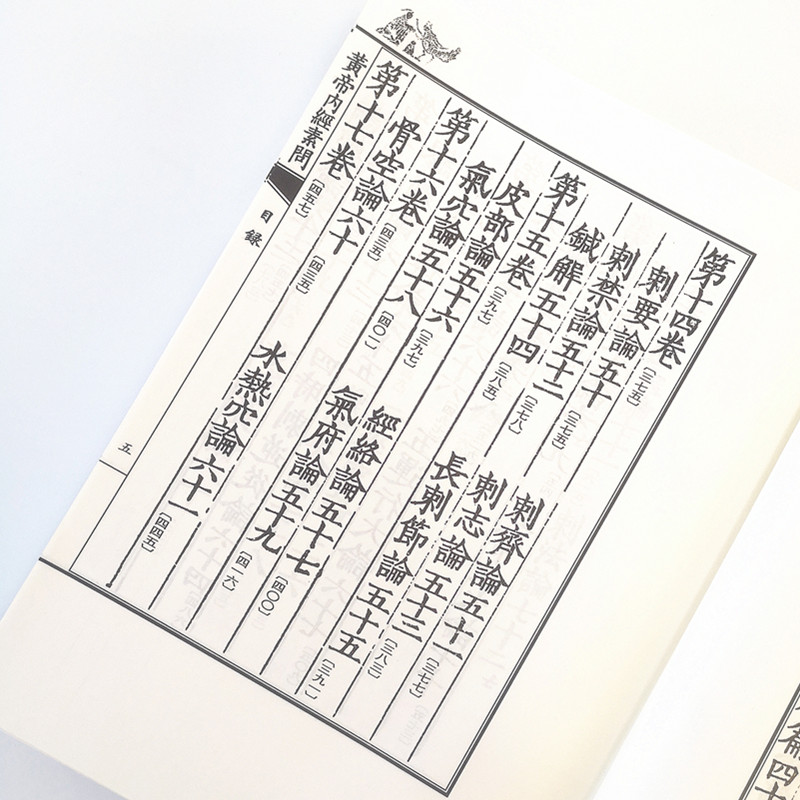 第十四卷〔三七五〕
刺要論五十〔三七五〕 刺齊論五十一〔三七七〕
刺禁論五十二〔三七八〕 刺志論五十三〔三八三〕
鍼解五十四〔三八五〕 長刺節論五十五〔三九一〕
第十五卷〔三九七〕
皮部論五十六〔三九七〕 經絡論五十七〔四〇〇〕
氣穴論五十八〔四〇一〕 氣府論五十九〔四一六〕
第十六卷〔四三五〕
骨空論六十〔四三五〕 水熱穴論六十一〔四四五〕
第十七卷〔四五七〕
黃帝內經素問 目錄 五
篇四十